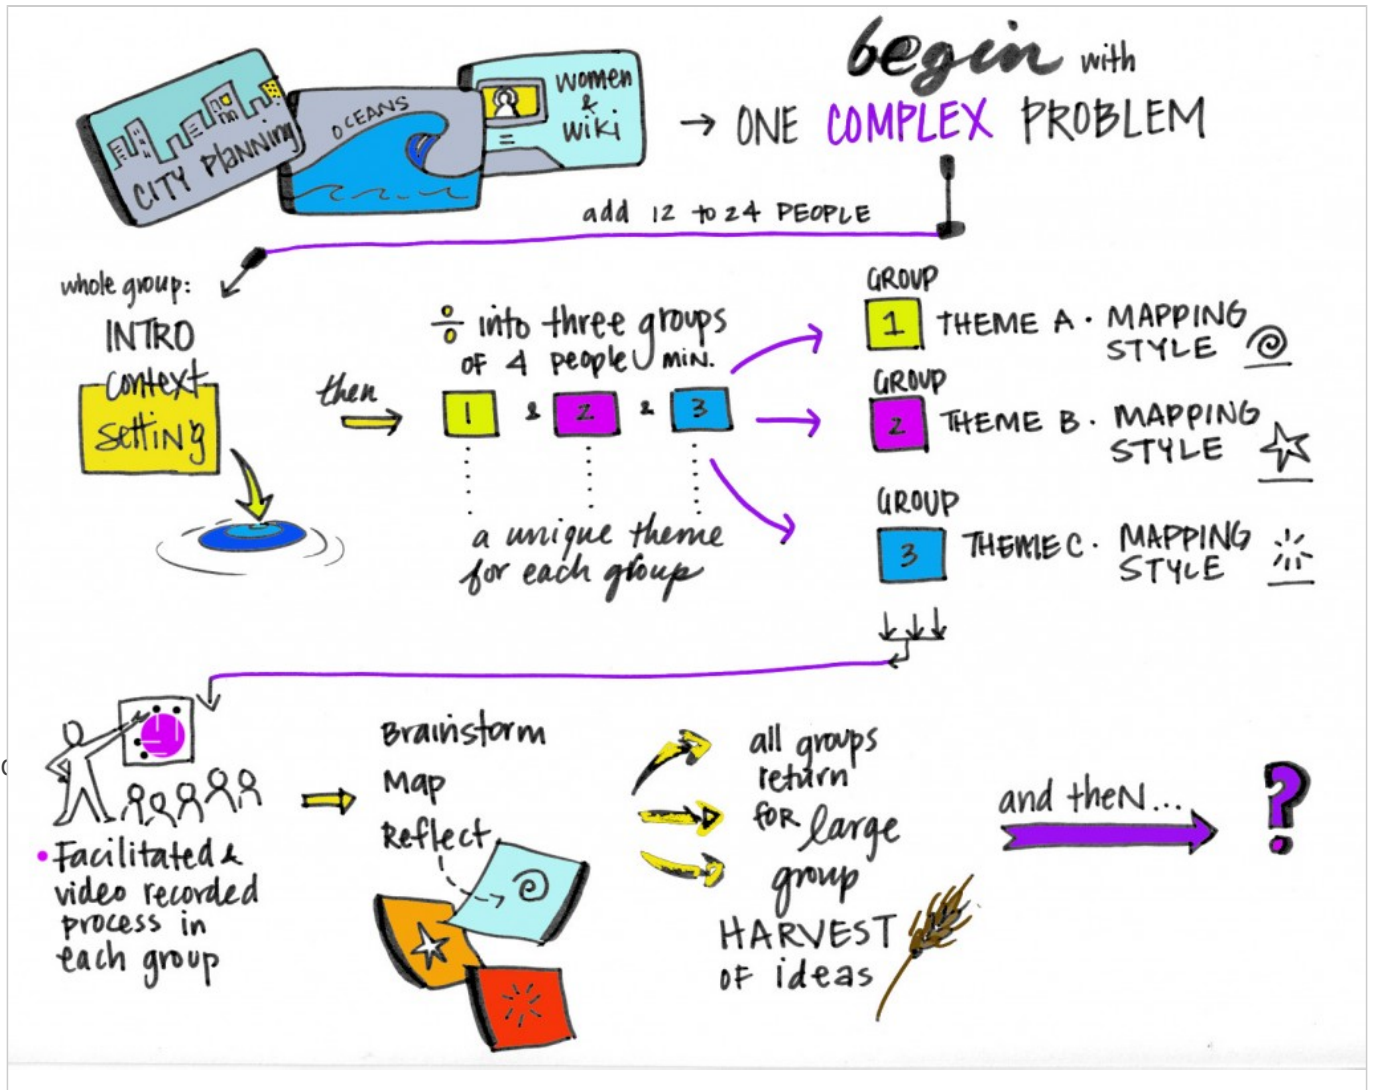 CITY planning
OCEANS
women
&
wiki
begin with
→ ONE COMPLEX PROBLEM
add 12 to 24 PEOPLE
whole group:
INTRO
context
setting
then
÷ into three groups
of 4 people min.
1 & 2 & 3
a unique theme
for each group
GROUP
1 THEME A · MAPPING
STYLE
GROUP
2 THEME B · MAPPING
STYLE
GROUP
3 THEME C · MAPPING
STYLE
• Facilitated &
video recorded
process in
each group
Brainstorm
Map
Reflect
all groups
return
for large
group
HARVEST
OF ideas
and then...
?